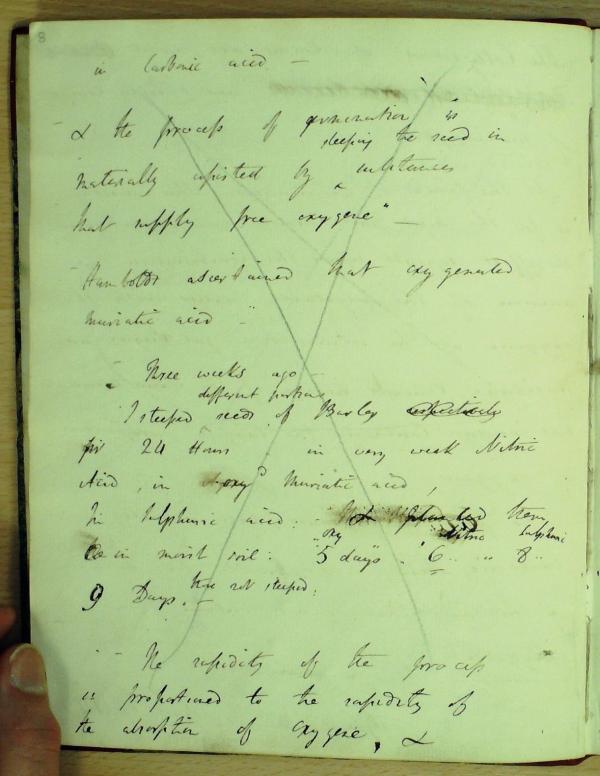 8
in Carbonic acid —
- & the process of germination is
steeping the seed in
materially assisted by ^ substances
that supply free oxygene" —
- Humboldt ascertained that oxygenated
muriatic acid -
- Three weeks ago
different portions
I steeped seeds of Barley respectively
for 24 Hours in very weak Nitric
Acid, in oxyd Muriatic acid,
In Sulphuric acid. them
Oxy Nitric Sulphuric
in moist soil: 5 days . 6 .. " 8 ..
those not steeped:
9 Days. —
- The rapidity of the process
is proportioned to the rapidity of
the absorption of oxygene, &